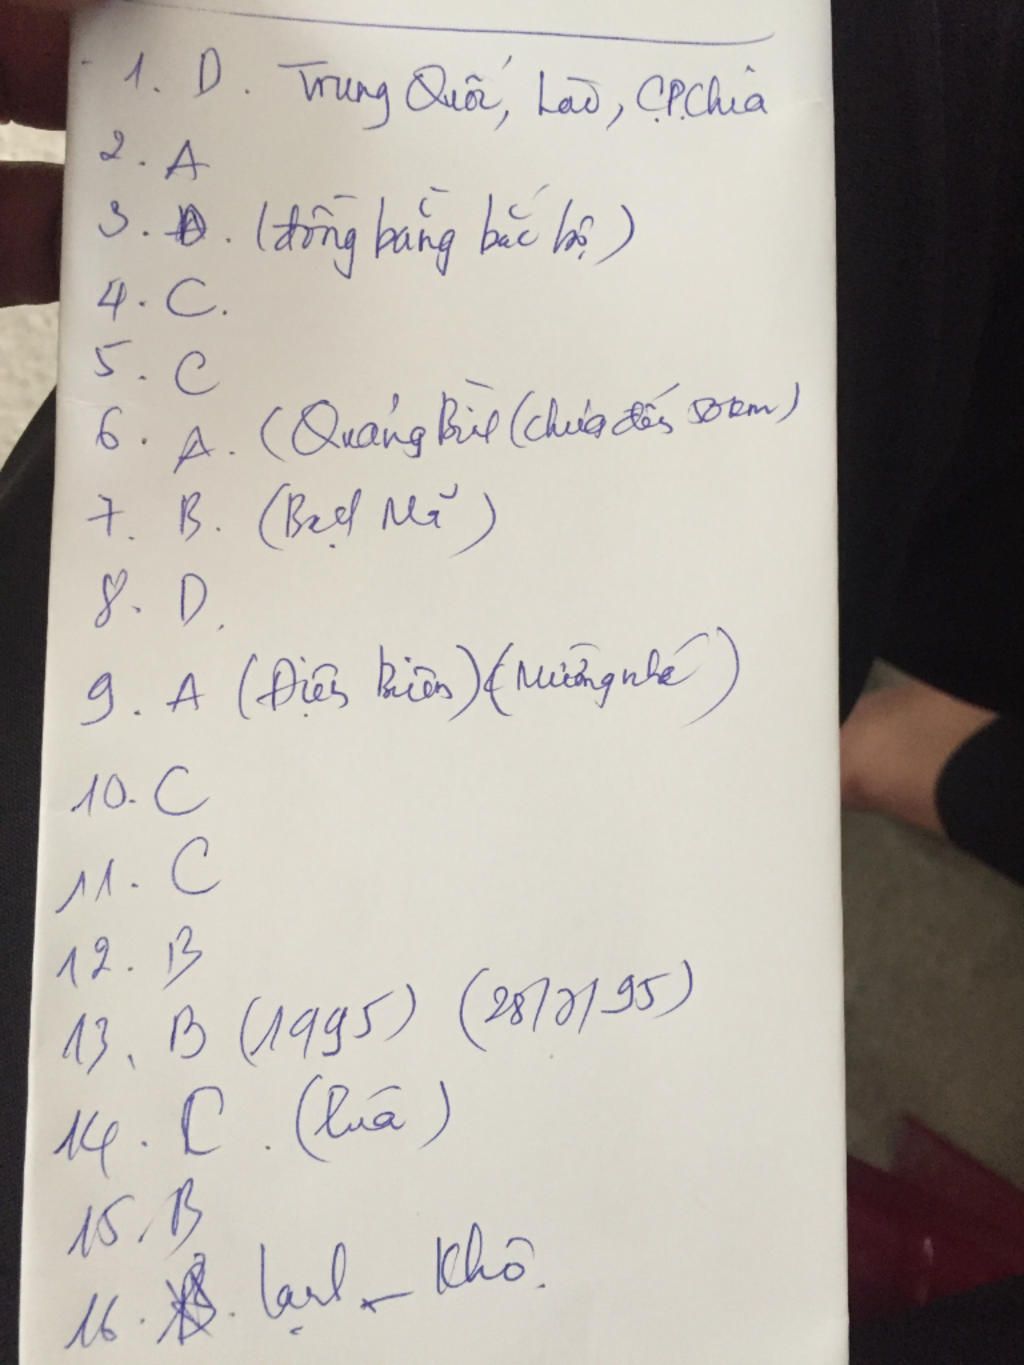 1. D. Trung Quốc, Lào, C.P.Chia
2. A
3. D. (đồng bằng bắc bộ)
4. C.
5. C
6. A. (Quảng Bình (chưa đến 50km)
7. B. (Bạch Mã)
8. D.
9. A (Điện Biên) (Mường nhé)
10. C
11. C
12. B
13. B (1995) (28/7/95)
14. C. (lúa)
15. B
16. lạnh - Khô.